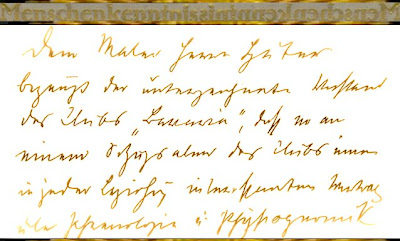 Dem Maler Herrn Huter
bezeugt der unterzeichnete Vorstand
des Clubs „Bavaria“, daß er an
einem Vortragsabend des Clubs einen
in jeder Beziehung interessanten Vortrag
über Phrenologie u Physiognomik